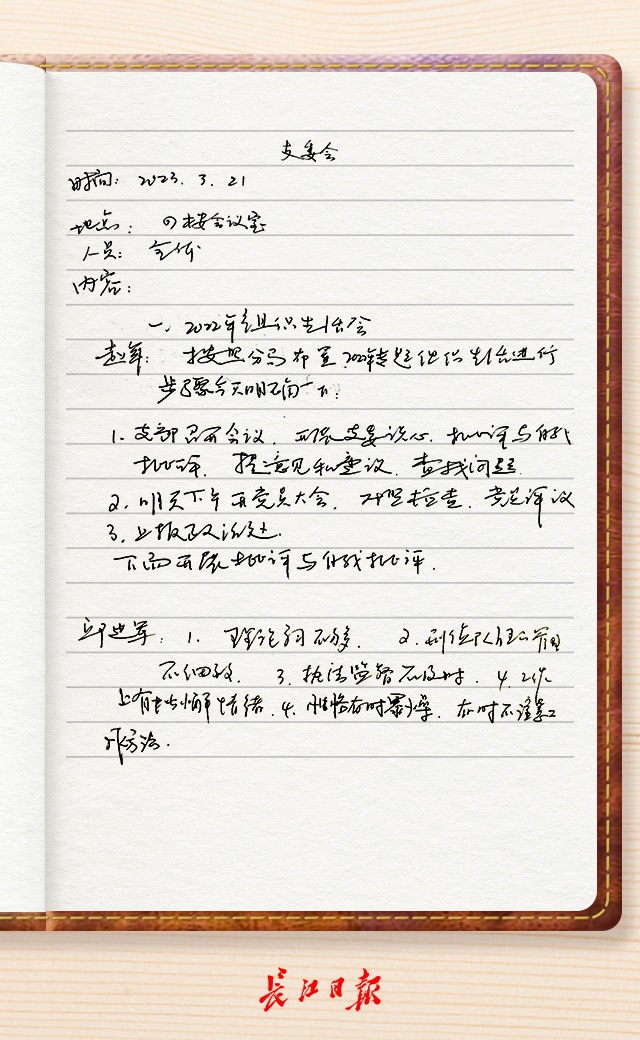 支委会
时间：2023.3.21
地点：四楼会议室
人员：全体
内容：
一、2022年组织生活会
赵军：按照分局布置，2022年专题组织生活会进行
步骤今天明确一下：
1.支部召开会议，开展支委谈心，批评与自我
批评，提意见和建议，查找问题
2.明天下午开党员大会，对照检查，党员评议
3.上报政治处
下面开展批评与自我批评.
邱建军：1.理论学习不够，2.刑侦队伍管理
不细致，3.执法监督不及时，4.工作
上有些懈怠情绪，4.性格有时暴躁，有时不注意工
作方法.
长江日报